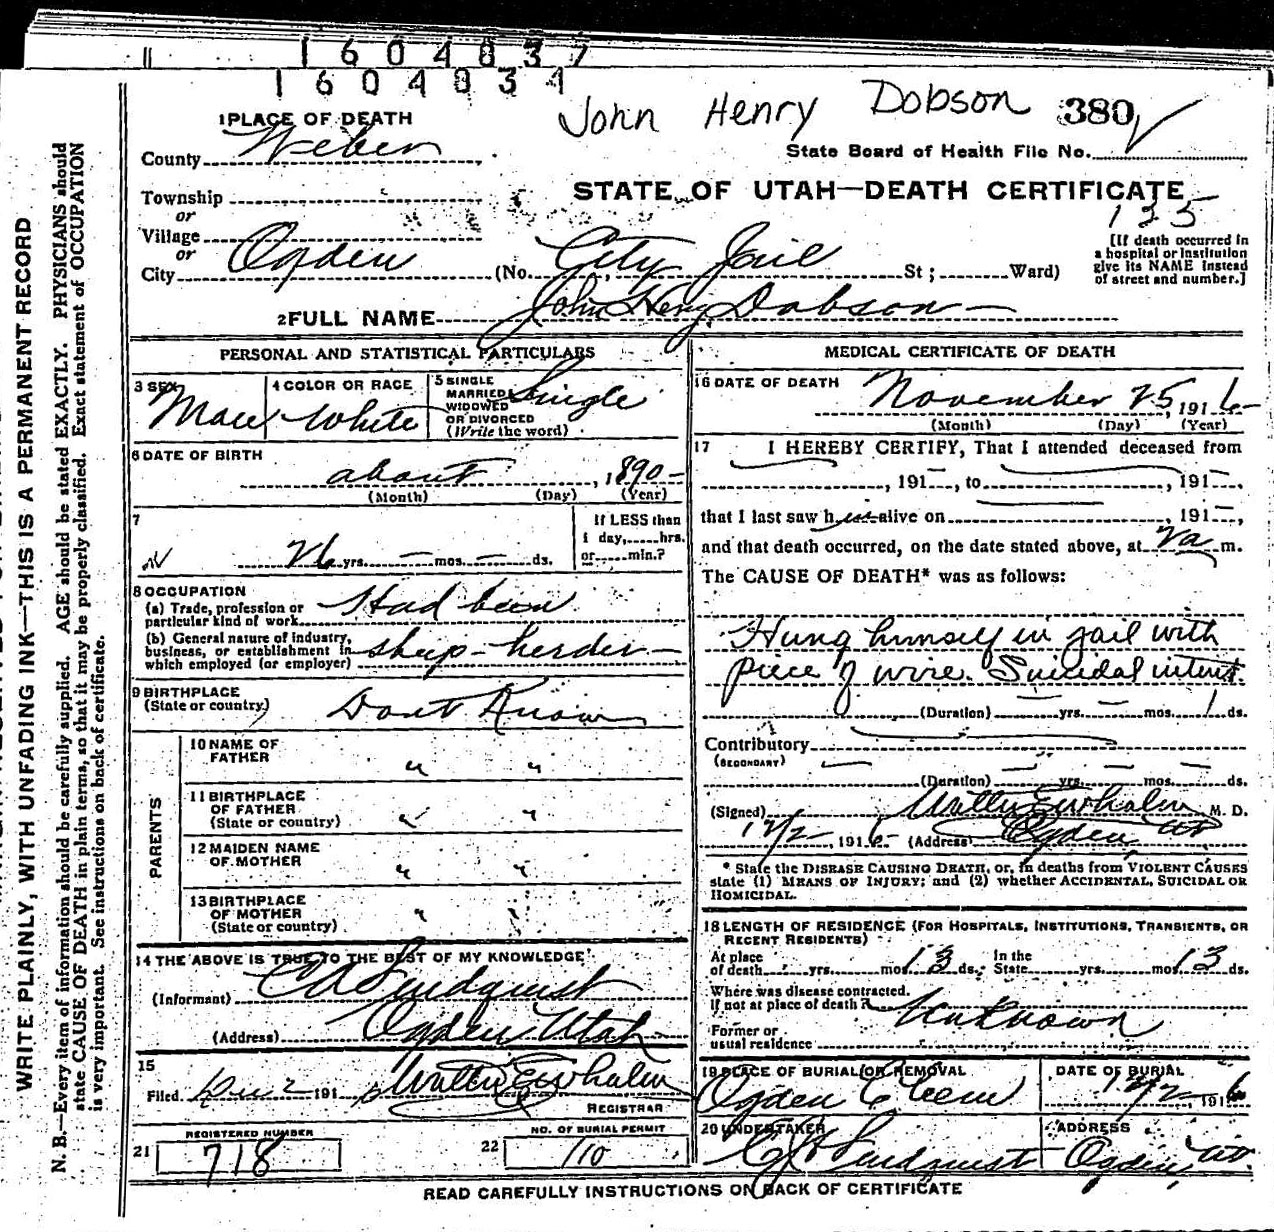 1604837
1604834
John Henry Dobson 380
1 PLACE OF DEATH
County Weber
State Board of Health File No.
STATE OF UTAH—DEATH CERTIFICATE
135
Township
or
Village
or
City Ogden (No. City Jail St; Ward)
[If death occurred in
a hospital or institution
give its NAME instead
of street and number.]
2 FULL NAME John Henry Dobson
PERSONAL AND STATISTICAL PARTICULARS
3 SEX Male
4 COLOR OR RACE White
5 SINGLE
MARRIED
WIDOWED
OR DIVORCED
(Write the word)
Single
6 DATE OF BIRTH
about, 1890
(Month) (Day) (Year)
7
26 yrs. — mos. — ds.
If LESS than
1 day, hrs.
or min.?
8 OCCUPATION
(a) Trade, profession or
particular kind of work Had been
(b) General nature of industry,
business, or establishment in
which employed (or employer) sheep-herder
9 BIRTHPLACE
(State or country) Dont Know
PARENTS
10 NAME OF
FATHER " "
11 BIRTHPLACE
OF FATHER
(State or country) " "
12 MAIDEN NAME
OF MOTHER " "
13 BIRTHPLACE
OF MOTHER
(State or country) " "
14 THE ABOVE IS TRUE TO THE BEST OF MY KNOWLEDGE
(Informant) Lindquist
(Address) Ogden Utah
15
Filed Dec 2 191 6 Walter E Whalen
REGISTRAR
REGISTERED NUMBER
21 718
NO. OF BURIAL PERMIT
22 110
MEDICAL CERTIFICATE OF DEATH
16 DATE OF DEATH November 25, 191 6
(Month) (Day) (Year)
17 I HEREBY CERTIFY, That I attended deceased from
, 191—, to , 191—,
that I last saw h im alive on , 191—,
and that death occurred, on the date stated above, at 2 a m.
The CAUSE OF DEATH* was as follows:
Hung himself in jail with
piece of wire. Suicidal intent.
(Duration) — yrs. — mos. 1 ds.
Contributory
(SECONDARY)
(Duration) — yrs. — mos. — ds.
(Signed) Walter E Whalen M. D.
12/2, 191 6 (Address) Ogden, Ut
* State the DISEASE CAUSING DEATH, or, in deaths from VIOLENT CAUSES
state (1) MEANS OF INJURY; and (2) whether ACCIDENTAL, SUICIDAL OR
HOMICIDAL.
18 LENGTH OF RESIDENCE (FOR HOSPITALS, INSTITUTIONS, TRANSIENTS, OR
RECENT RESIDENTS)
At place
of death yrs. mos. 13 ds.; In the
State yrs. mos. 13 ds.
Where was disease contracted,
if not at place of death? Unknown
Former or
usual residence
19 PLACE OF BURIAL OR REMOVAL
Ogden Cem
DATE OF BURIAL
12/2, 191 6
20 UNDERTAKER
Lindquist
ADDRESS
Ogden, Ut.
READ CAREFULLY INSTRUCTIONS ON BACK OF CERTIFICATE
WRITE PLAINLY, WITH UNFADING INK—THIS IS A PERMANENT RECORD
N. B.—Every item of information should be carefully supplied. AGE should be stated EXACTLY. PHYSICIANS should
state CAUSE OF DEATH in plain terms, so that it may be properly classified. Exact statement of OCCUPATION
is very important. See instructions on back of certificate.